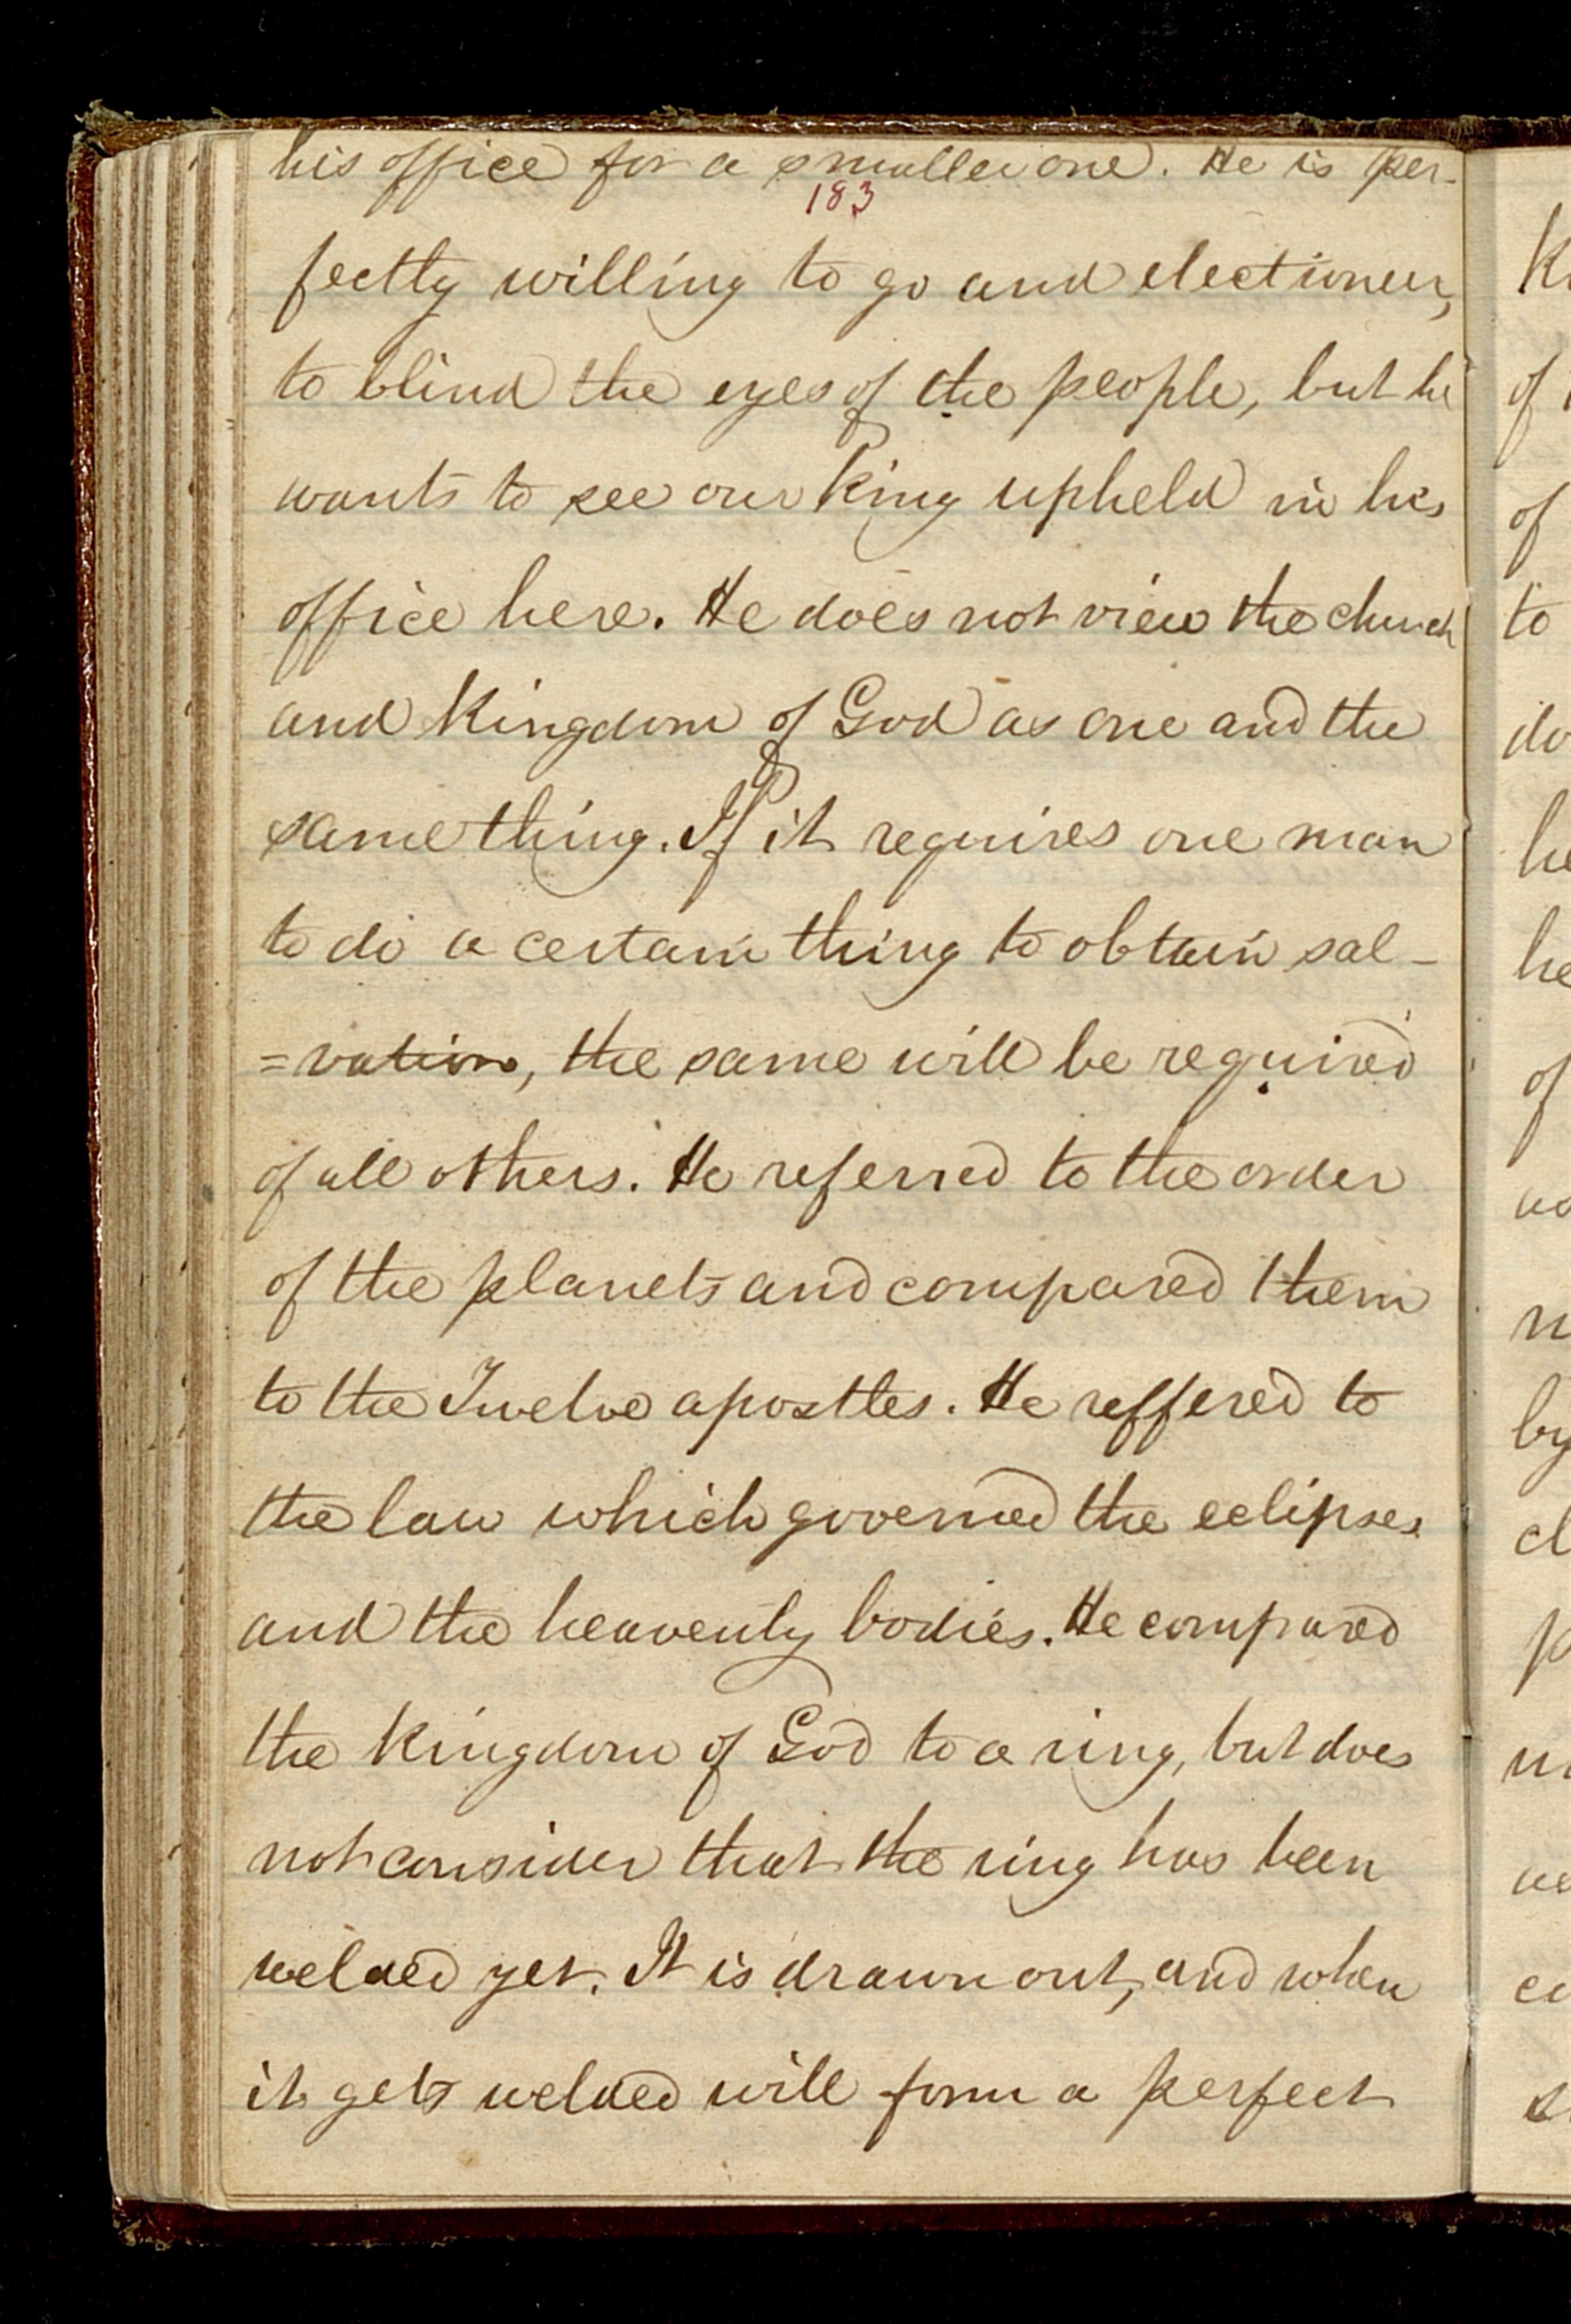 his office for a smaller one. He is per-
183
fectly willing to go and electioneer,
to blind the eyes of the people, but he
wants to see our King upheld in his
office here. He does not view the church
and Kingdom of God as one and the
same thing. If it requires one man
to do a certain thing to obtain sal-
=vation, the same will be required
of all others. He referred to the order
of the planets and compared them
to the Twelve apostles. He reffered to
the law which governed the eclipses
and the heavenly bodies. He compared
the Kingdom of God to a ring, but does
not consider that the ring has been
welded yet. It is drawn out, and when
it gets welded will form a perfect